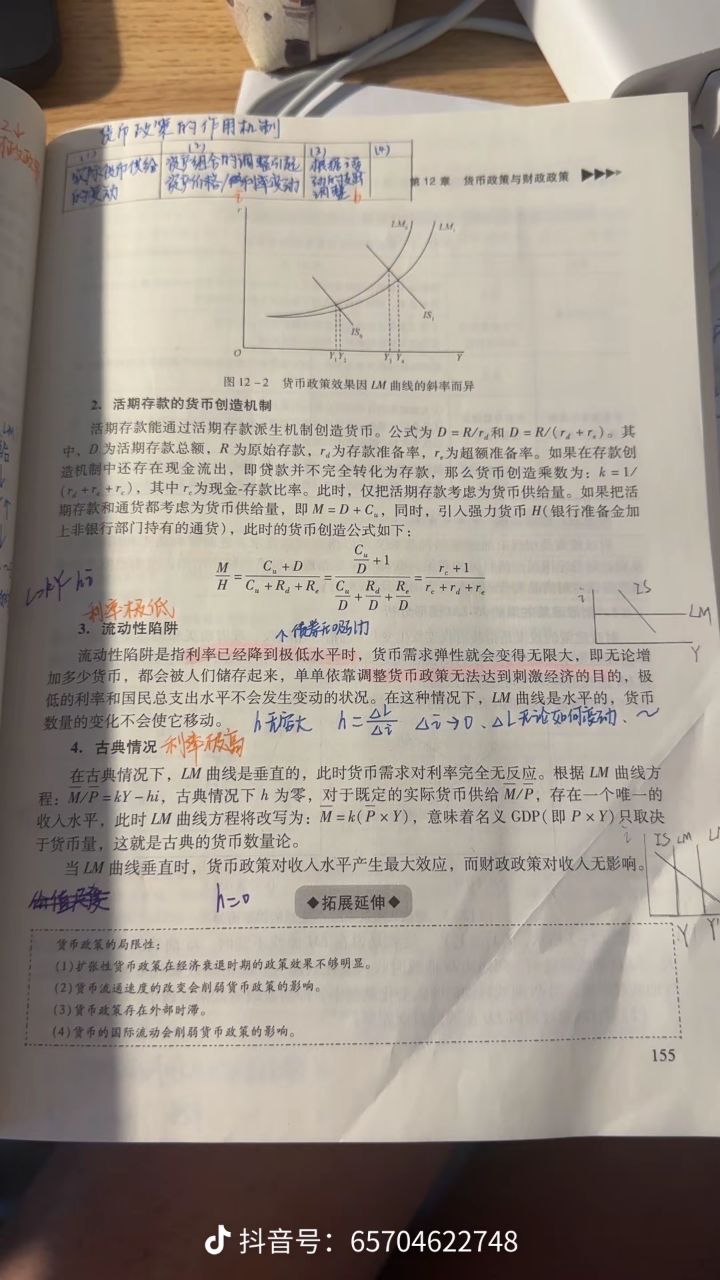 货币政策的作用机制
(1) (2) (3) (4)
实际货币供给 资产组合的调整引起 根据
的变动 资产价格/利率变动 调整
i b
第 12 章 货币政策与财政政策
r
LM₀ LM₁
IS₁
IS₀
O Y₁Y₂ Y₃ Y₄ Y
图 12-2 货币政策效果因 LM 曲线的斜率而异
2. 活期存款的货币创造机制
活期存款能通过活期存款派生机制创造货币。公式为 D = R/r_d和 D = R/(r_d + r_e)。其
中，D 为活期存款总额，R 为原始存款，r_d为存款准备率，r_e为超额准备率。如果在存款创
造机制中还存在现金流出，即贷款并不完全转化为存款，那么货币创造乘数为：k = 1/
(r_d + r_e + r_c)，其中 r_c为现金-存款比率。此时，仅把活期存款考虑为货币供给量。如果把活
期存款和通货都考虑为货币供给量，即 M = D + C_u，同时，引入强力货币 H(银行准备金加
上非银行部门持有的通货)，此时的货币创造公式如下：
M/H = (C_u + D)/(C_u + R_d + R_e) = (C_u/D + 1)/(C_u/D + R_d/D + R_e/D) = (r_c + 1)/(r_c + r_d + r_e)
kY hi
i IS
LM
Y
利率极低
3. 流动性陷阱
流动性陷阱是指利率已经降到极低水平时，货币需求弹性就会变得无限大，即无论增
加多少货币，都会被人们储存起来，单单依靠调整货币政策无法达到刺激经济的目的，极
低的利率和国民总支出水平不会发生变动的状况。在这种情况下，LM 曲线是水平的，货币
数量的变化不会使它移动。 h无穷大 h=ΔL/Δi Δi→0、ΔL无论如何变动、~
4. 古典情况 利率极高
在古典情况下，LM 曲线是垂直的，此时货币需求对利率完全无反应。根据 LM 曲线方
程：M̅/P̅ = kY - hi，古典情况下 h 为零，对于既定的实际货币供给 M̅/P̅，存在一个唯一的
收入水平，此时 LM 曲线方程将改写为：M̅ = k(P̅ × Y)，意味着名义 GDP(即 P × Y)只取决
于货币量，这就是古典的货币数量论。
当 LM 曲线垂直时，货币政策对收入水平产生最大效应，而财政政策对收入无影响。
i IS LM
Y Y'
h=0
◆拓展延伸◆
货币政策的局限性：
(1)扩张性货币政策在经济衰退时期的政策效果不够明显。
(2)货币流通速度的改变会削弱货币政策的影响。
(3)货币政策存在外部时滞。
(4)货币的国际流动会削弱货币政策的影响。
155
抖音号：65704622748